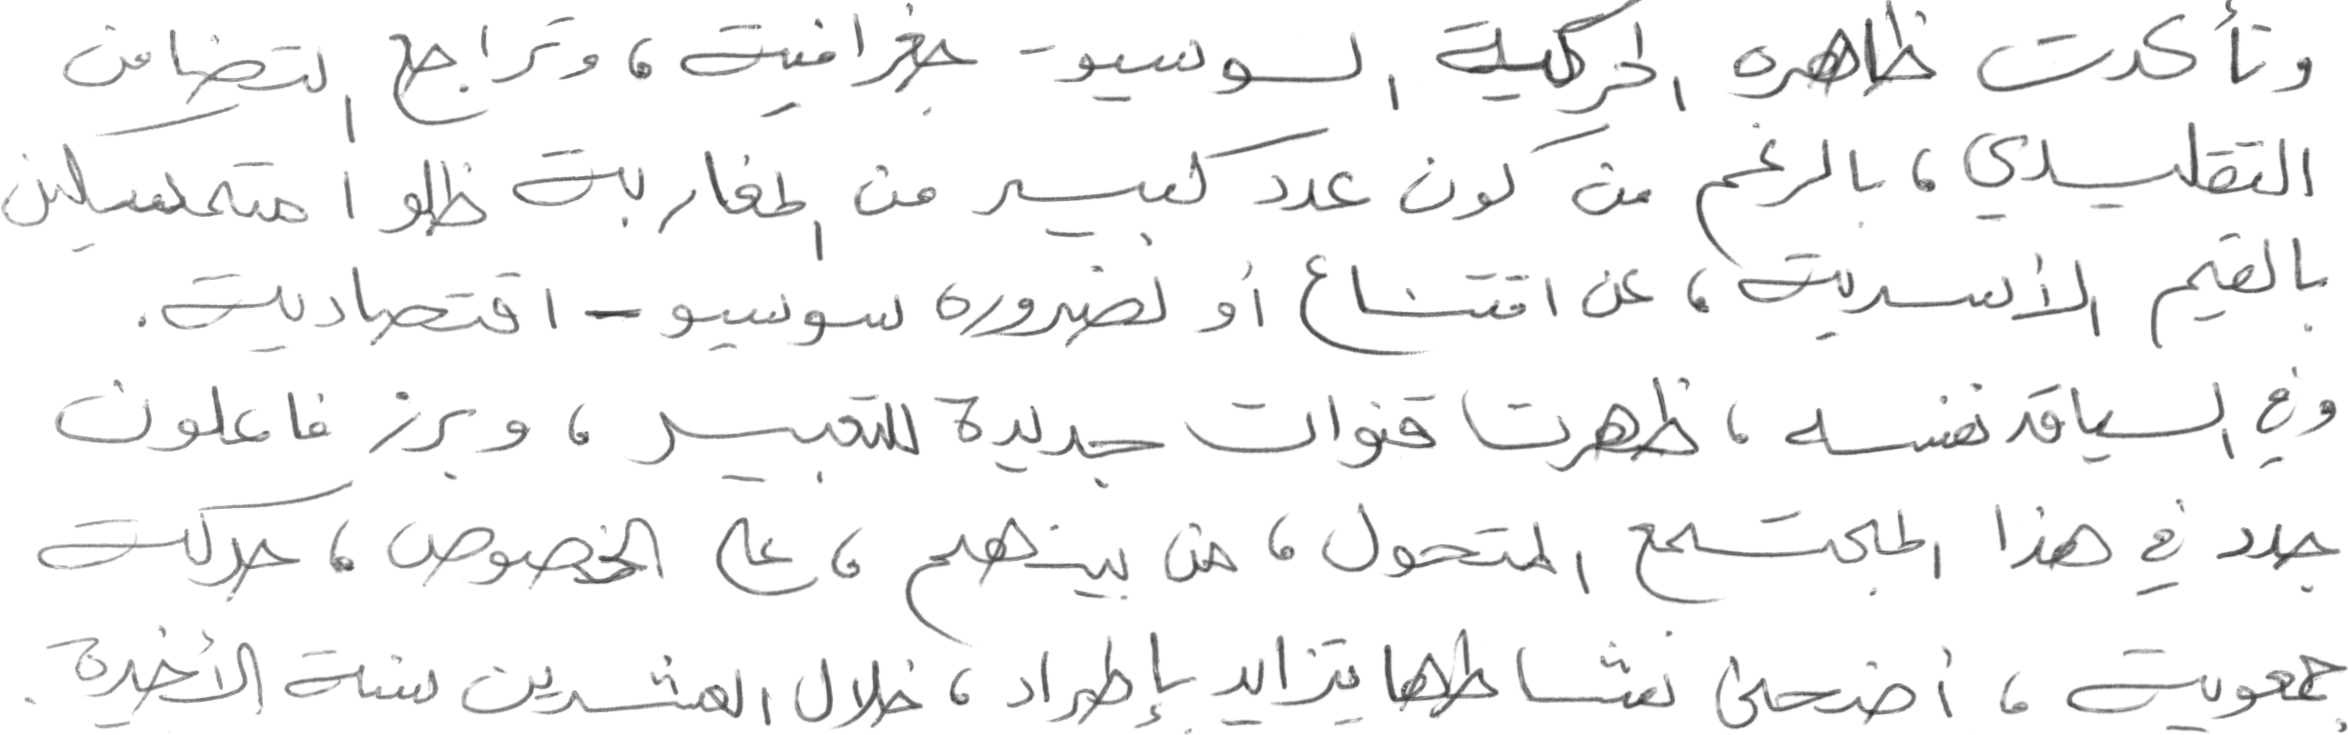 وتأكدت ظاهره الحركية السوسيو- جغرافية، وتراجع التضامن
التقليدي، بالرغم من كون عدد كبير من المغاربة ظلوا متمسكين
بالقيم الأسرية، عن اقتناع أو لضروره سوسيو - اقتصادية.
وفي السياق نفسه، ظهرت قنوات جديدة للتعبير، وبرز فاعلون
جدد في هذا المجتمع المتحول، من بينهم، على الخصوص، حركة
جمعوية، أضحى نشاطها يتزايد بإطراد، خلال العشرين سنة الأخيرة.